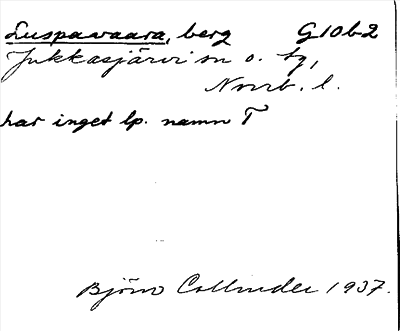 Luspavaara, berg G10b2
Jukkasjärvi sn o. tg,
Norrb. l.
har inget lp. namn T
Björn Collinder 1937.